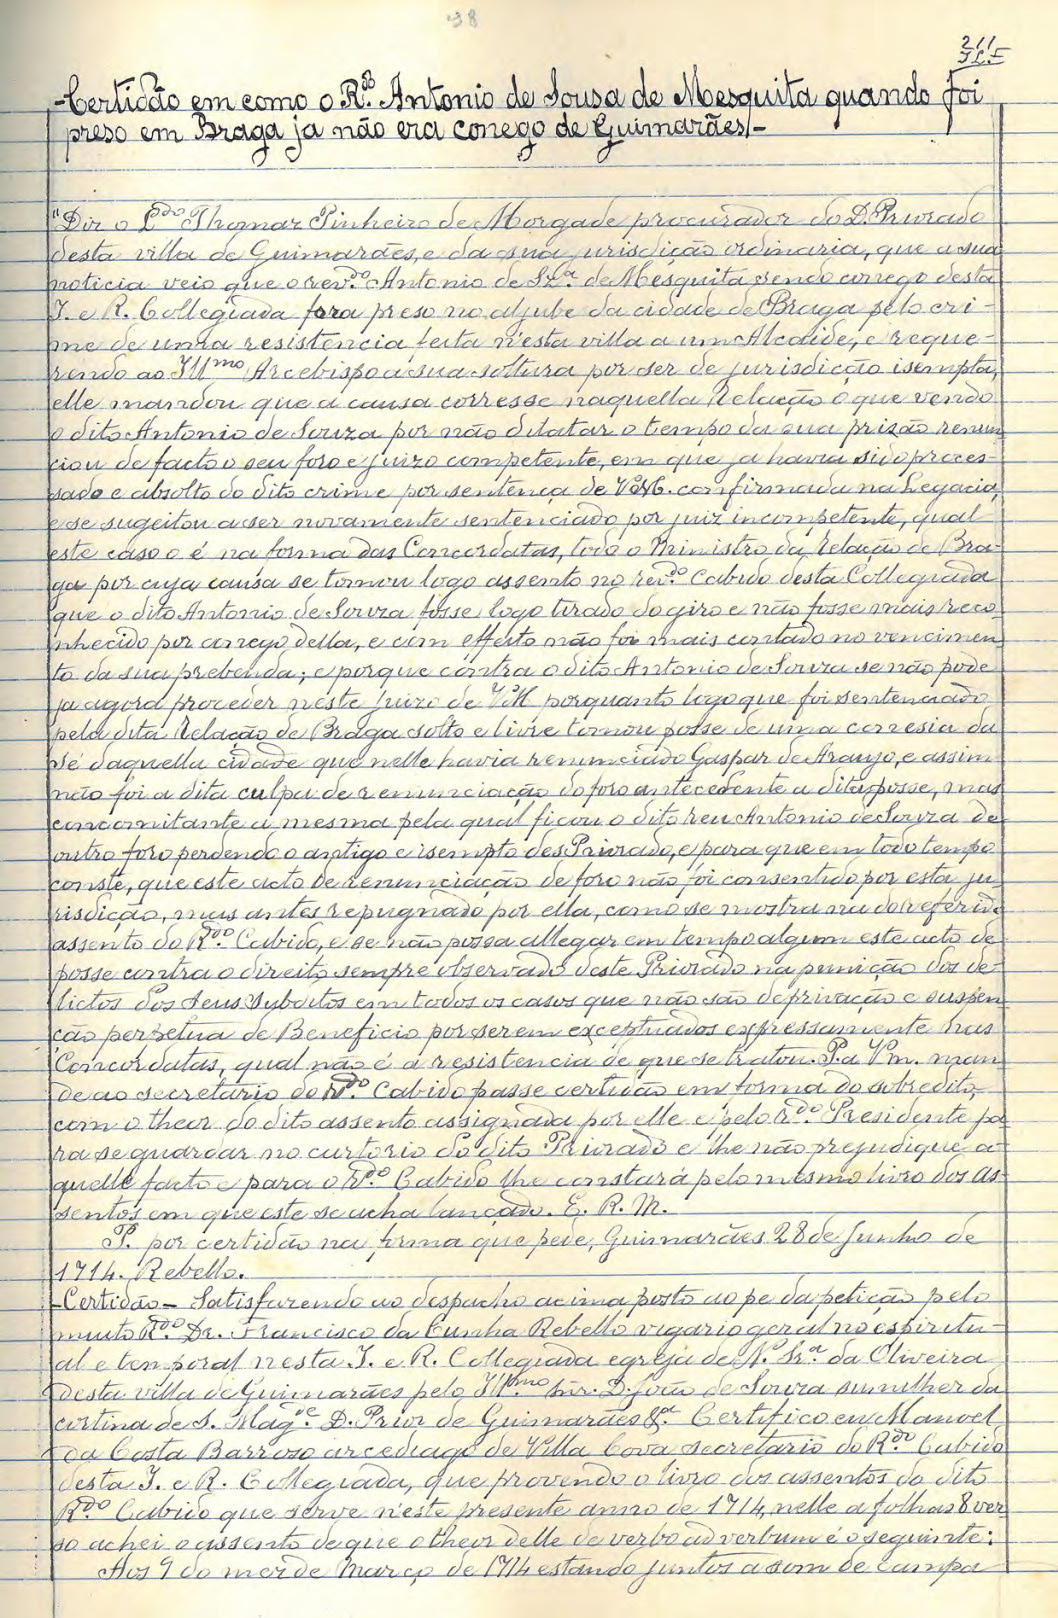 38
211
-Certidão em como o R.do Antonio de Sousa de Mesquita quando foi
preso em Braga ja não era conego de Guimarães/-
"Diz o L.do Thomaz Pinheiro de Morgade procurador do D. Priorado
desta villa de Guimarães, e da sua jurisdição ordinaria, que a sua
noticia veio que o rev.do Antonio de Sz.a de Mesquita sendo conego desta
I. e R. Collegiada fora preso no aljube da cidade de Braga pelo cri-
me de uma resistencia feita n'esta villa a um Alcaide, e reque-
rendo ao Ill.mo Arcebispo a sua soltura por ser de jurisdicção isempta,
elle mandou que a causa corresse naquella Relação o que vendo
o dito Antonio de Souza por não dilatar o tempo da sua prizão renun
ciou de facto o seu foro e juizo competente, em que ja havia sido proces-
sado e absolto do dito crime por sentença de V.M. confirmada na Legacia,
e se sugeitou a ser novamente sentenciado por juiz incompetente, qual
este caso o é na forma das Concordatas, todo o Ministro da Relação de Bra-
ga por cuja causa se tomou logo assento no rev.do Cabido desta Collegiada
que o dito Antonio de Souza fosse logo tirado do giro e não fosse mais reco
nhecido por conego della, e com effeito não foi mais contado no vencimen
to da sua prebenda; e porque contra o dito Antonio de Souza se não pode
ja agora proceder neste juizo de V.M porquanto logo que foi sentenciado
pela dita Relação de Braga solto e livre tomou posse de uma conesia da
Sé daquella cidade que nelle havia renunciado Gaspar de Araujo, e assim
não foi a dita culpa de renunciação do foro antecedente a dita posse, mas
concomitante a mesma pela qual ficou o dito reu Antonio de Souza de
outro foro perdendo o antigo e isempto des Priorado, e para que em todo tempo
conste, que este acto de renunciação de foro não foi consentido por esta ju-
risdição, mas antes repugnado por ella, como se mostra na do referido
assento do R.do Cabido, e se não possa allegar em tempo algum este acto de
posse contra o direito sempre observado deste Priorado na punição dos de-
lictos dos seus subditos em todos os casos que não são de privação e suspen
ção perpetua de Beneficio por serem exceptuados expressamente nas
Concordatas, qual não é a resistencia de que se tratou. P. a Vm. man
de ao secretario do R.do Cabido passe certidão em forma do sobredito,
com o theor do dito assento assignada por elle e pelo R.do Presidente pa
ra se guardar no cartorio do dito Priorado e lhe não prejudique a-
quelle facto e para o R.do Cabido lhe constará pelo mesmo livro dos as-
sentos em que este se acha lançado. E. R. M.
P. por certidão na forma que pede, Guimarães 28 de Junho de
1714. Rebello.
-Certidão- Satisfazendo ao despacho acima posto ao pe da petição pelo
muito R.do Dr. Francisco da Cunha Rebello vigario geral no espiritu-
al e temporal nesta I. e R. Collegiada egreja de N. Sr.a da Oliveira
desta villa de Guimarães pelo Ill.mo Snr. D. João de Souza sumilher da
cortina de S. Mag.e D. Prior de Guimarães &.a Certifico eu Manoel
da Costa Barroso arcediago de Villa Cova secretario do R.do Cabido
desta I. e R. Collegiada, que provendo o livro dos assentos do dito
R.do Cabido que serve n'este presente anno de 1714, nelle a folhas 8 ver
so achei o assento de que o theor delle de verbo ad verbum é o seguinte:
Aos 9 do mez de Março de 1714 estando juntos a som de campa